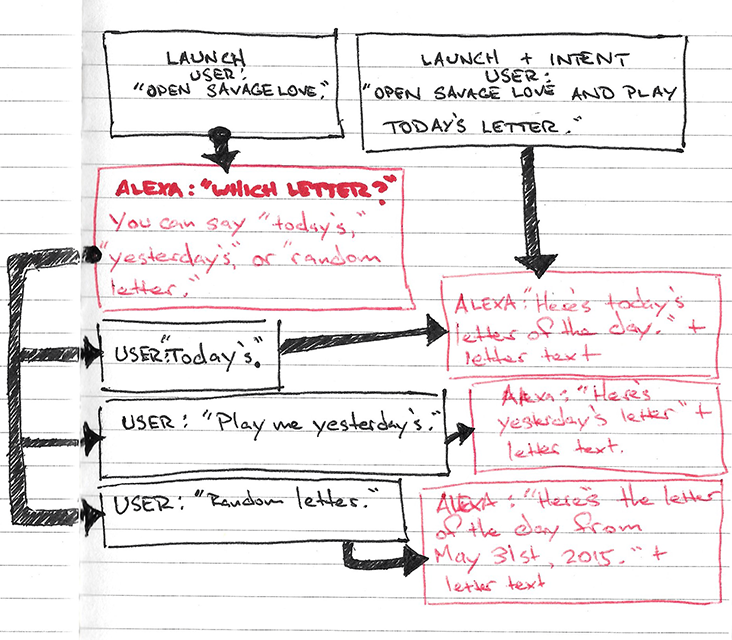 LAUNCH
USER:
"OPEN SAVAGE LOVE."
LAUNCH + INTENT
USER:
"OPEN SAVAGE LOVE AND PLAY
TODAY'S LETTER."
ALEXA: "WHICH LETTER?"
You can say "today's,"
"yesterday's," or "random
letter."
ALEXA: "Here's today's
letter of the day." +
letter text
USER: "Today's."
Alexa: "Here's
yesterday's letter" +
letter text.
USER: "Play me yesterday's."
USER: "Random letter."
ALEXA: "Here's the letter
of the day from
May 31st, 2015." +
letter text